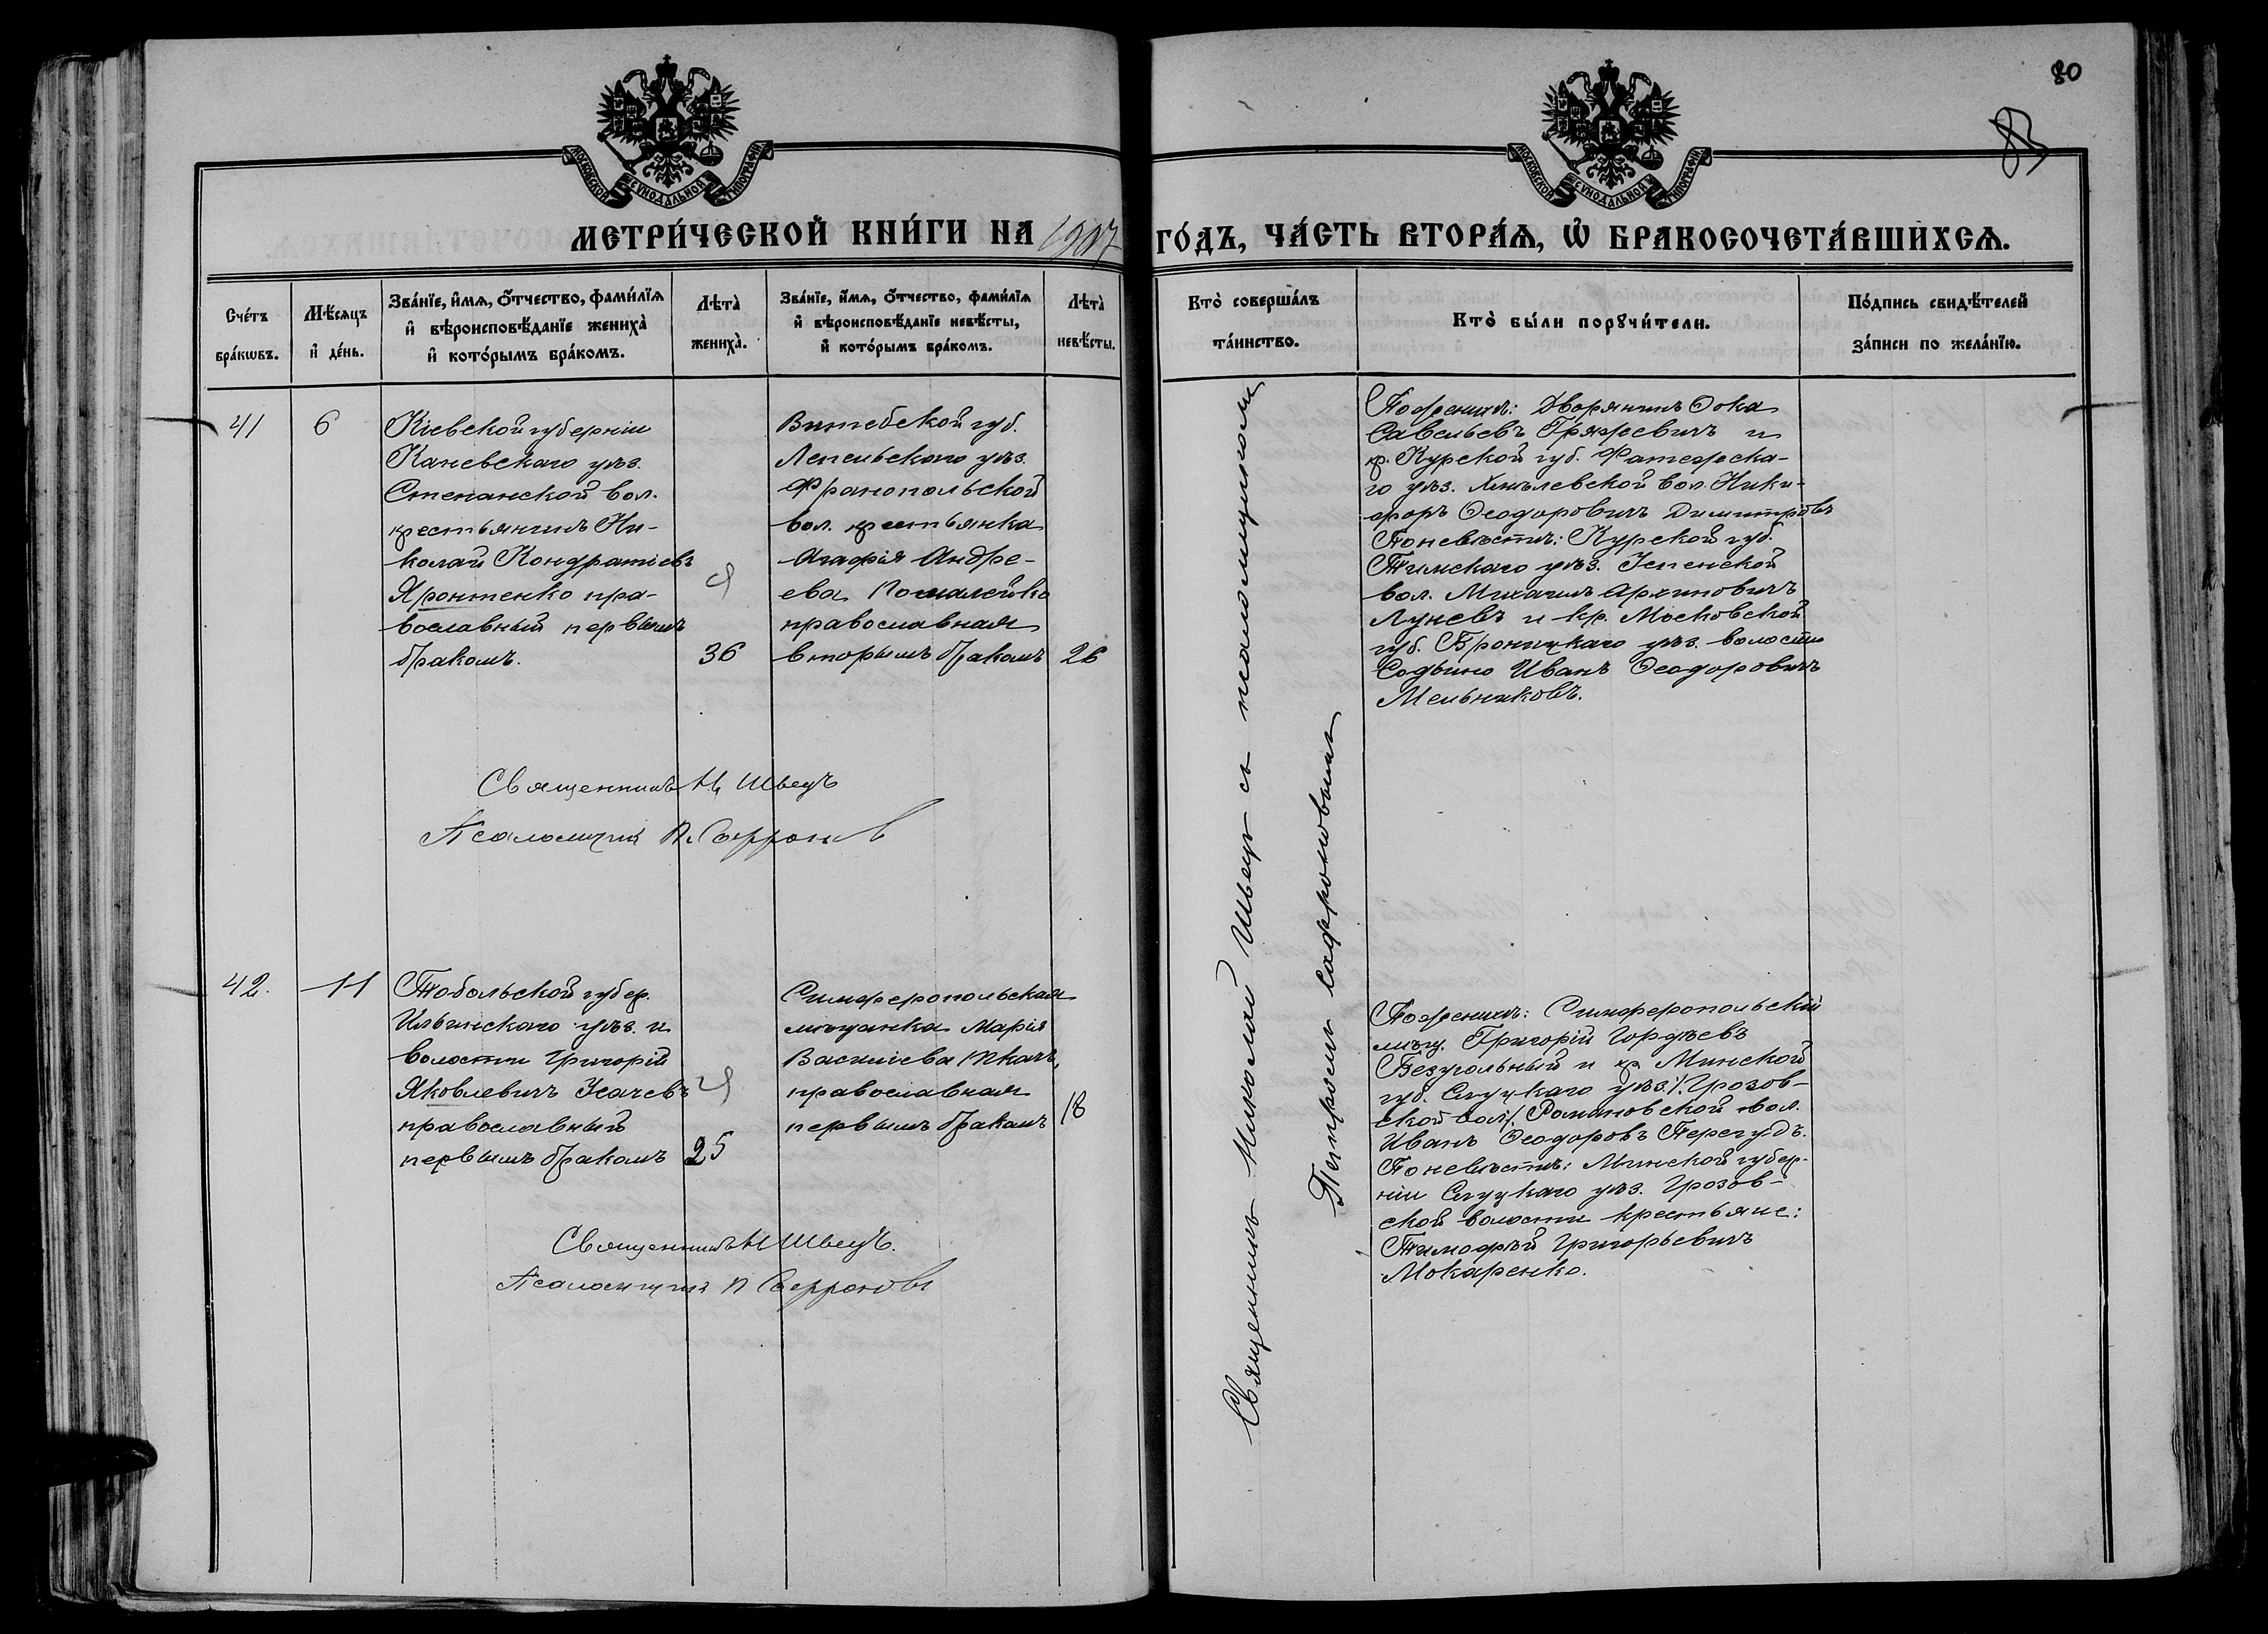 80
МОСКОВСКОЙ СѴНОДАЛЬНОЙ ТИПОГРАФІИ
МОСКОВСКОЙ СѴНОДАЛЬНОЙ ТИПОГРАФІИ
МЕТРИ́ЧЕСКОЙ КНИ́ГИ НА 1907 ГО́ДЪ, ЧА́СТЬ ВТОРА́Ѧ, Ѽ БРАКОСОЧЕТА́ВШИХСѦ.
Сче́тъ
бра́кωвъ.
Мѣ́сяцъ
и҆ де́нь.
Зва́нїе, и҆́мѧ, о҆́тчество, фами́лїѧ
и҆ вѣроисповѣ́данїе жениха̀
и҆ кото́рымъ бра́комъ.
Лѣта̀
жениха̀.
Зва́нїе, и҆́мѧ, о҆́тчество, фами́лїѧ
и҆ вѣроисповѣ́данїе невѣ́сты,
и҆ кото́рымъ бра́комъ.
Лѣта̀
невѣ́сты.
Кто̀ соверша́лъ
та́инство.
Кто̀ бы́ли порꙋчи́тели.
По́дпись свидѣ́телей
за́писи по жела́нїю.
41
6
Кіевской губерніи
Каневскаго уѣз.
Степанской вол.
крестьянинъ Ни-
колай Кондратіевъ
Яронтенко пра-
вославный первымъ
бракомъ.
36
Витебской губ.
Лепельскаго уѣз.
Франопольской
вол. крестьянка
Агафія Андре-
ева
православная
вторымъ бракомъ
26
Священникъ Н Швецъ
Псаломщикъ П. Софронов
Священникъ Николай Швецъ съ псаломщикомъ
Петромъ Софроновымъ
По женихѣ: Дворянинъ Ѳока
Савельевъ Гряжевичъ и
кр. Курской губ. Фатежска-
го уѣз. Хмѣлевской вол. Ники-
форъ Ѳеодоровичъ Димитровъ
По невѣстѣ: Курской губ.
Тимскаго уѣз. Успенской
вол. Михаилъ Архиповичъ
Луневъ и кр. Московской
губ. Броницкаго уѣз. волости
Иванъ Ѳеодоровичъ
Мельниковъ.
42.
11
Тобольской губер.
Ильинскаго уѣз. и
волости Григорій
Яковлевичъ Усачевъ
православный
первымъ бракомъ
25
Симферопольская
мѣщанка Марія
Василіева Ткачъ,
православная
первымъ бракомъ
18
Священникъ Н Швецъ.
Псаломщикъ П Софроновъ
По женихѣ: Симферопольскій
мѣщ. Григорій Гордѣевъ
Безугольный и кр Минской
губ. Слуцкаго уѣз. /. Грозов-
ской вол /. Романовской вол.
Иванъ Ѳеодоровъ Перегудъ.
По невѣстѣ: Минской губер-
ніи Слуцкаго уѣз. Грозов-
ской волости крестьяне:
Тимофѣй Григорьевичъ
Мокаренко.